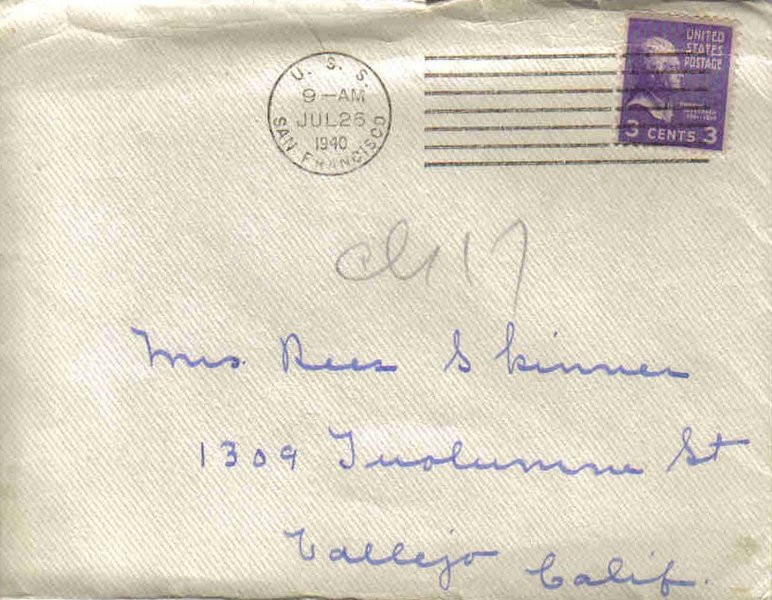 U. S. S.
9-AM
JUL 26
1940
SAN FRANCISCO
UNITED
STATES
POSTAGE
3 CENTS 3
Mrs. Rees Skinner
1309 Tuolumne St
Vallejo Calif.